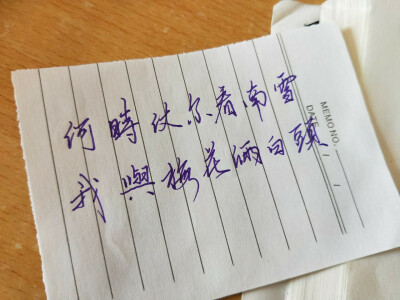 何時仗尔看南雪
我與梅花倆白頭
MEMO NO.
DATE / /